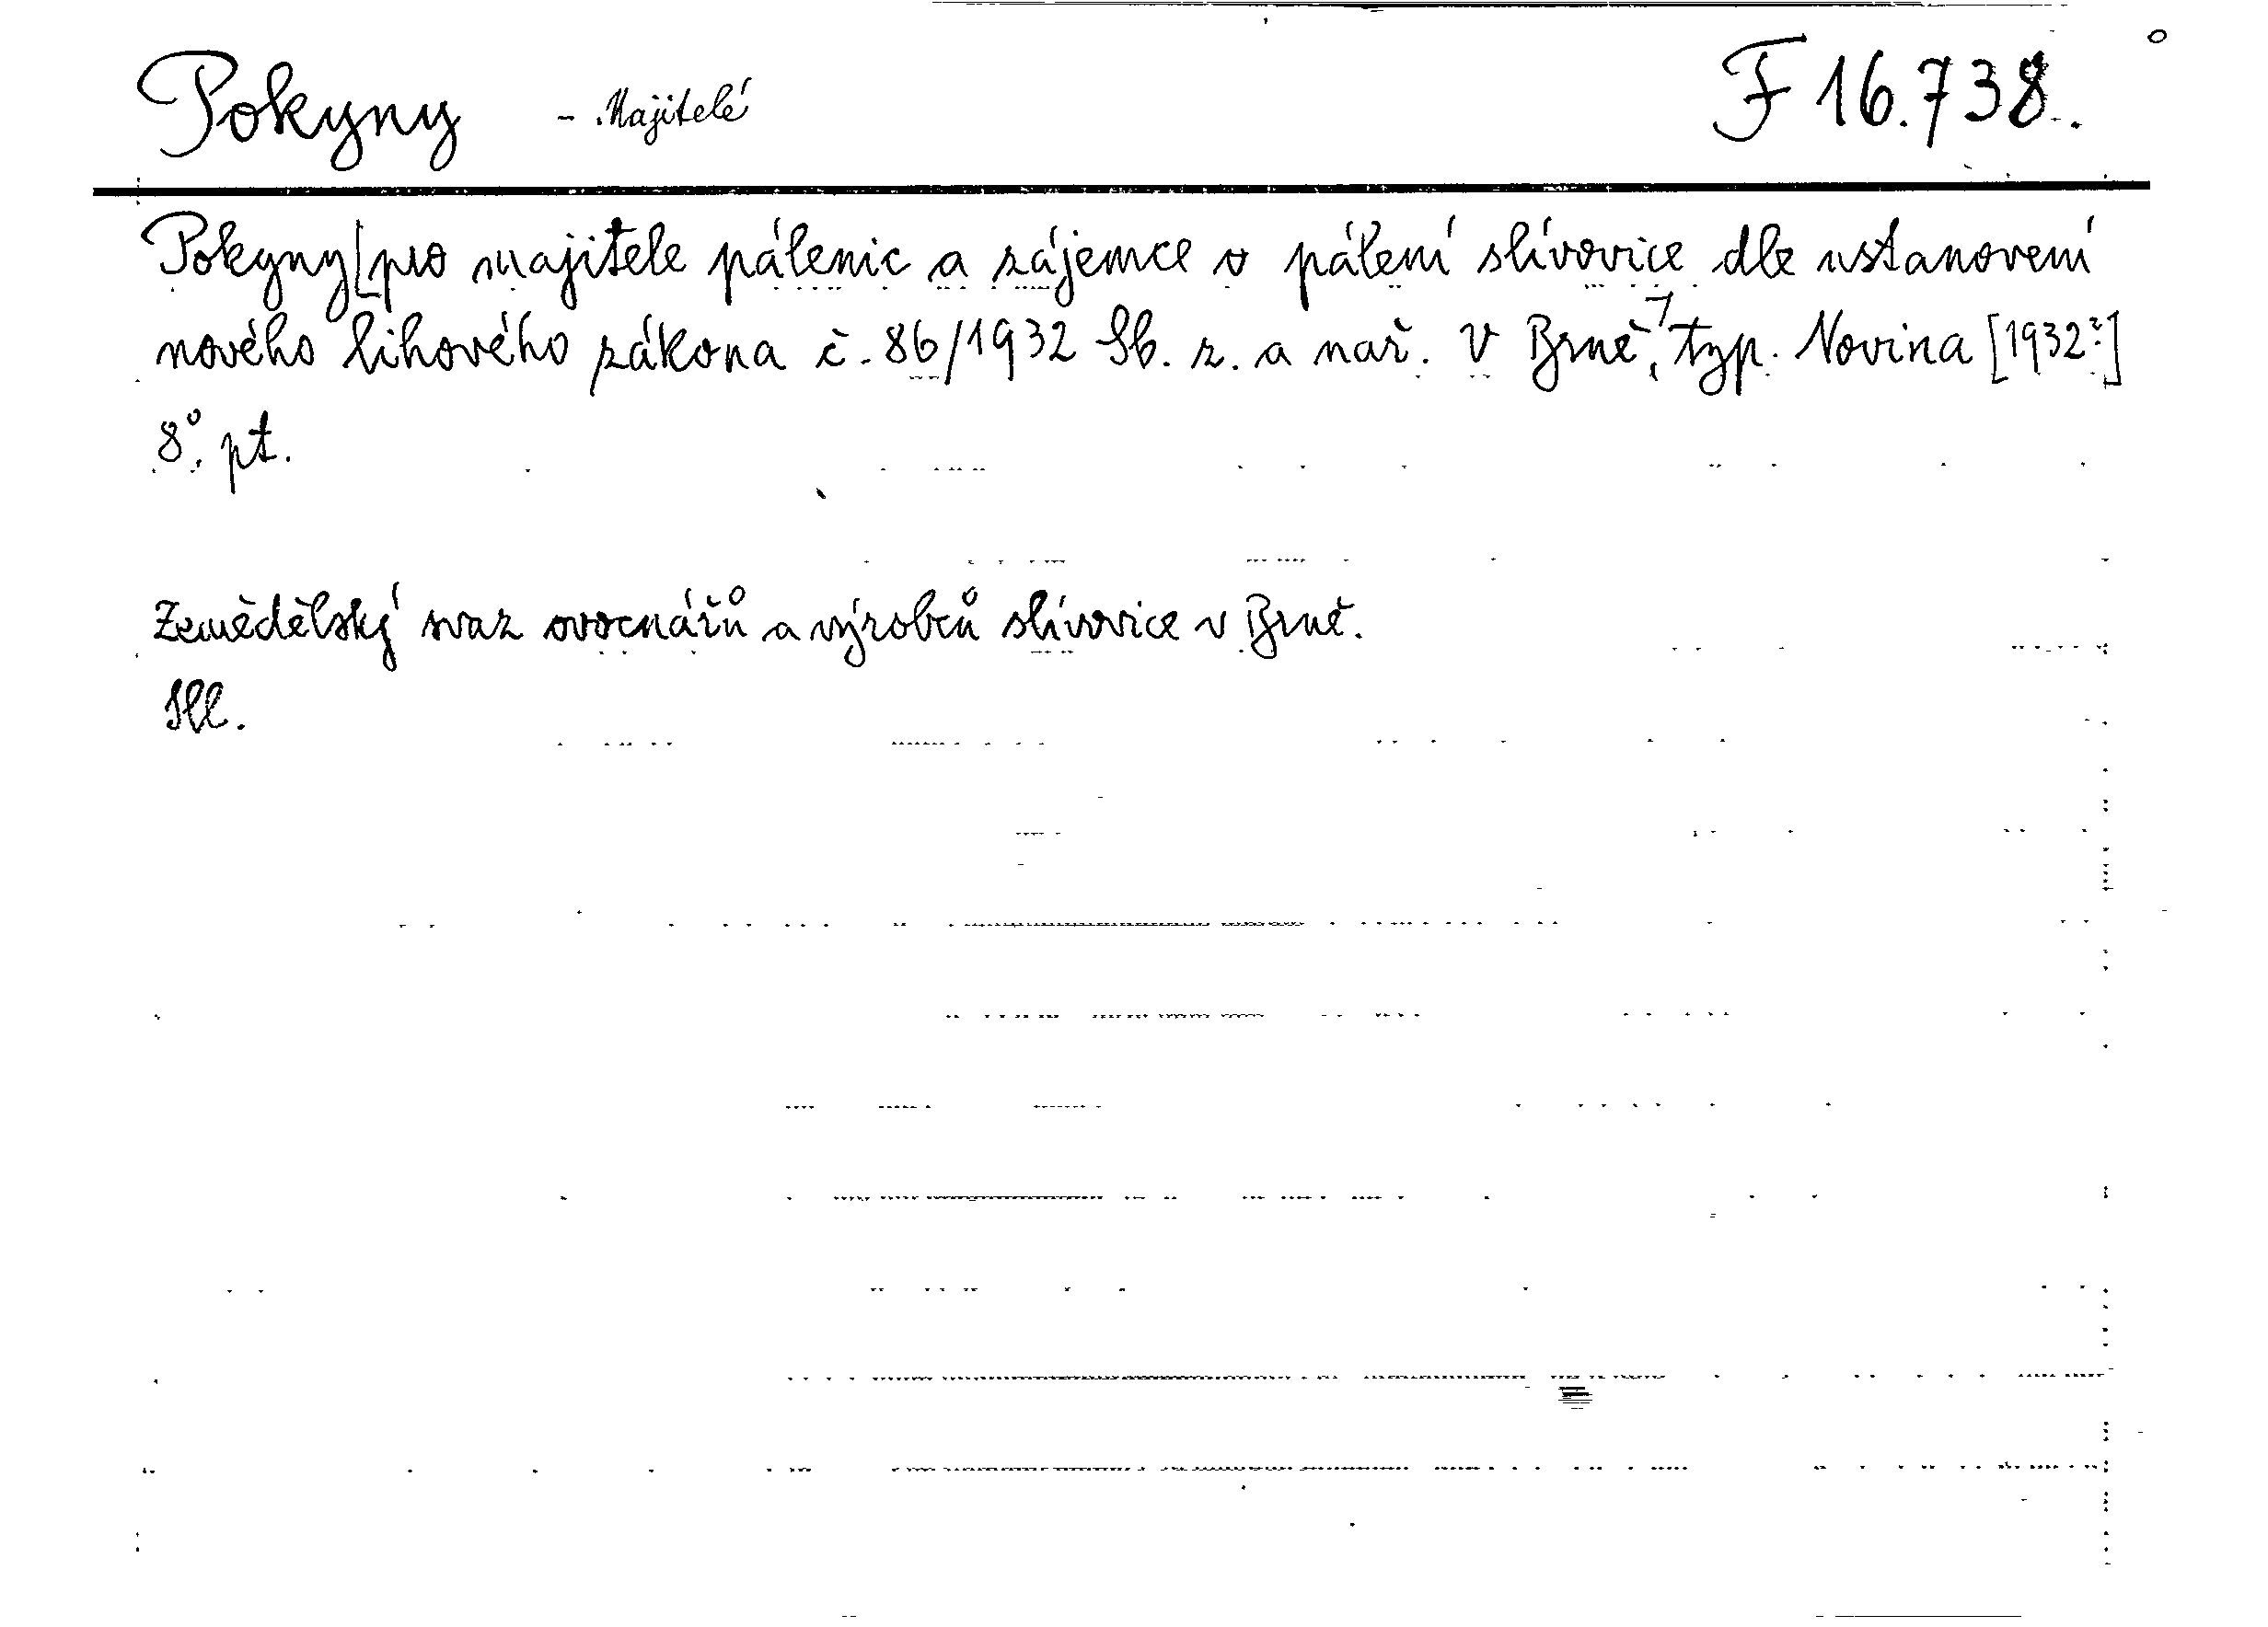 Pokyny - Majitelé F 16.738.
Pokyny pro majitele pálenic a zájemce o pálení slívovice dle ustanovení
nového lihového zákona č. 86/1932 Sb. z. a nař. V Brně, typ. Novina [1932?]
8°. pt.
Zemědělský svaz ovocnářů a výrobců slívovice v Brně.